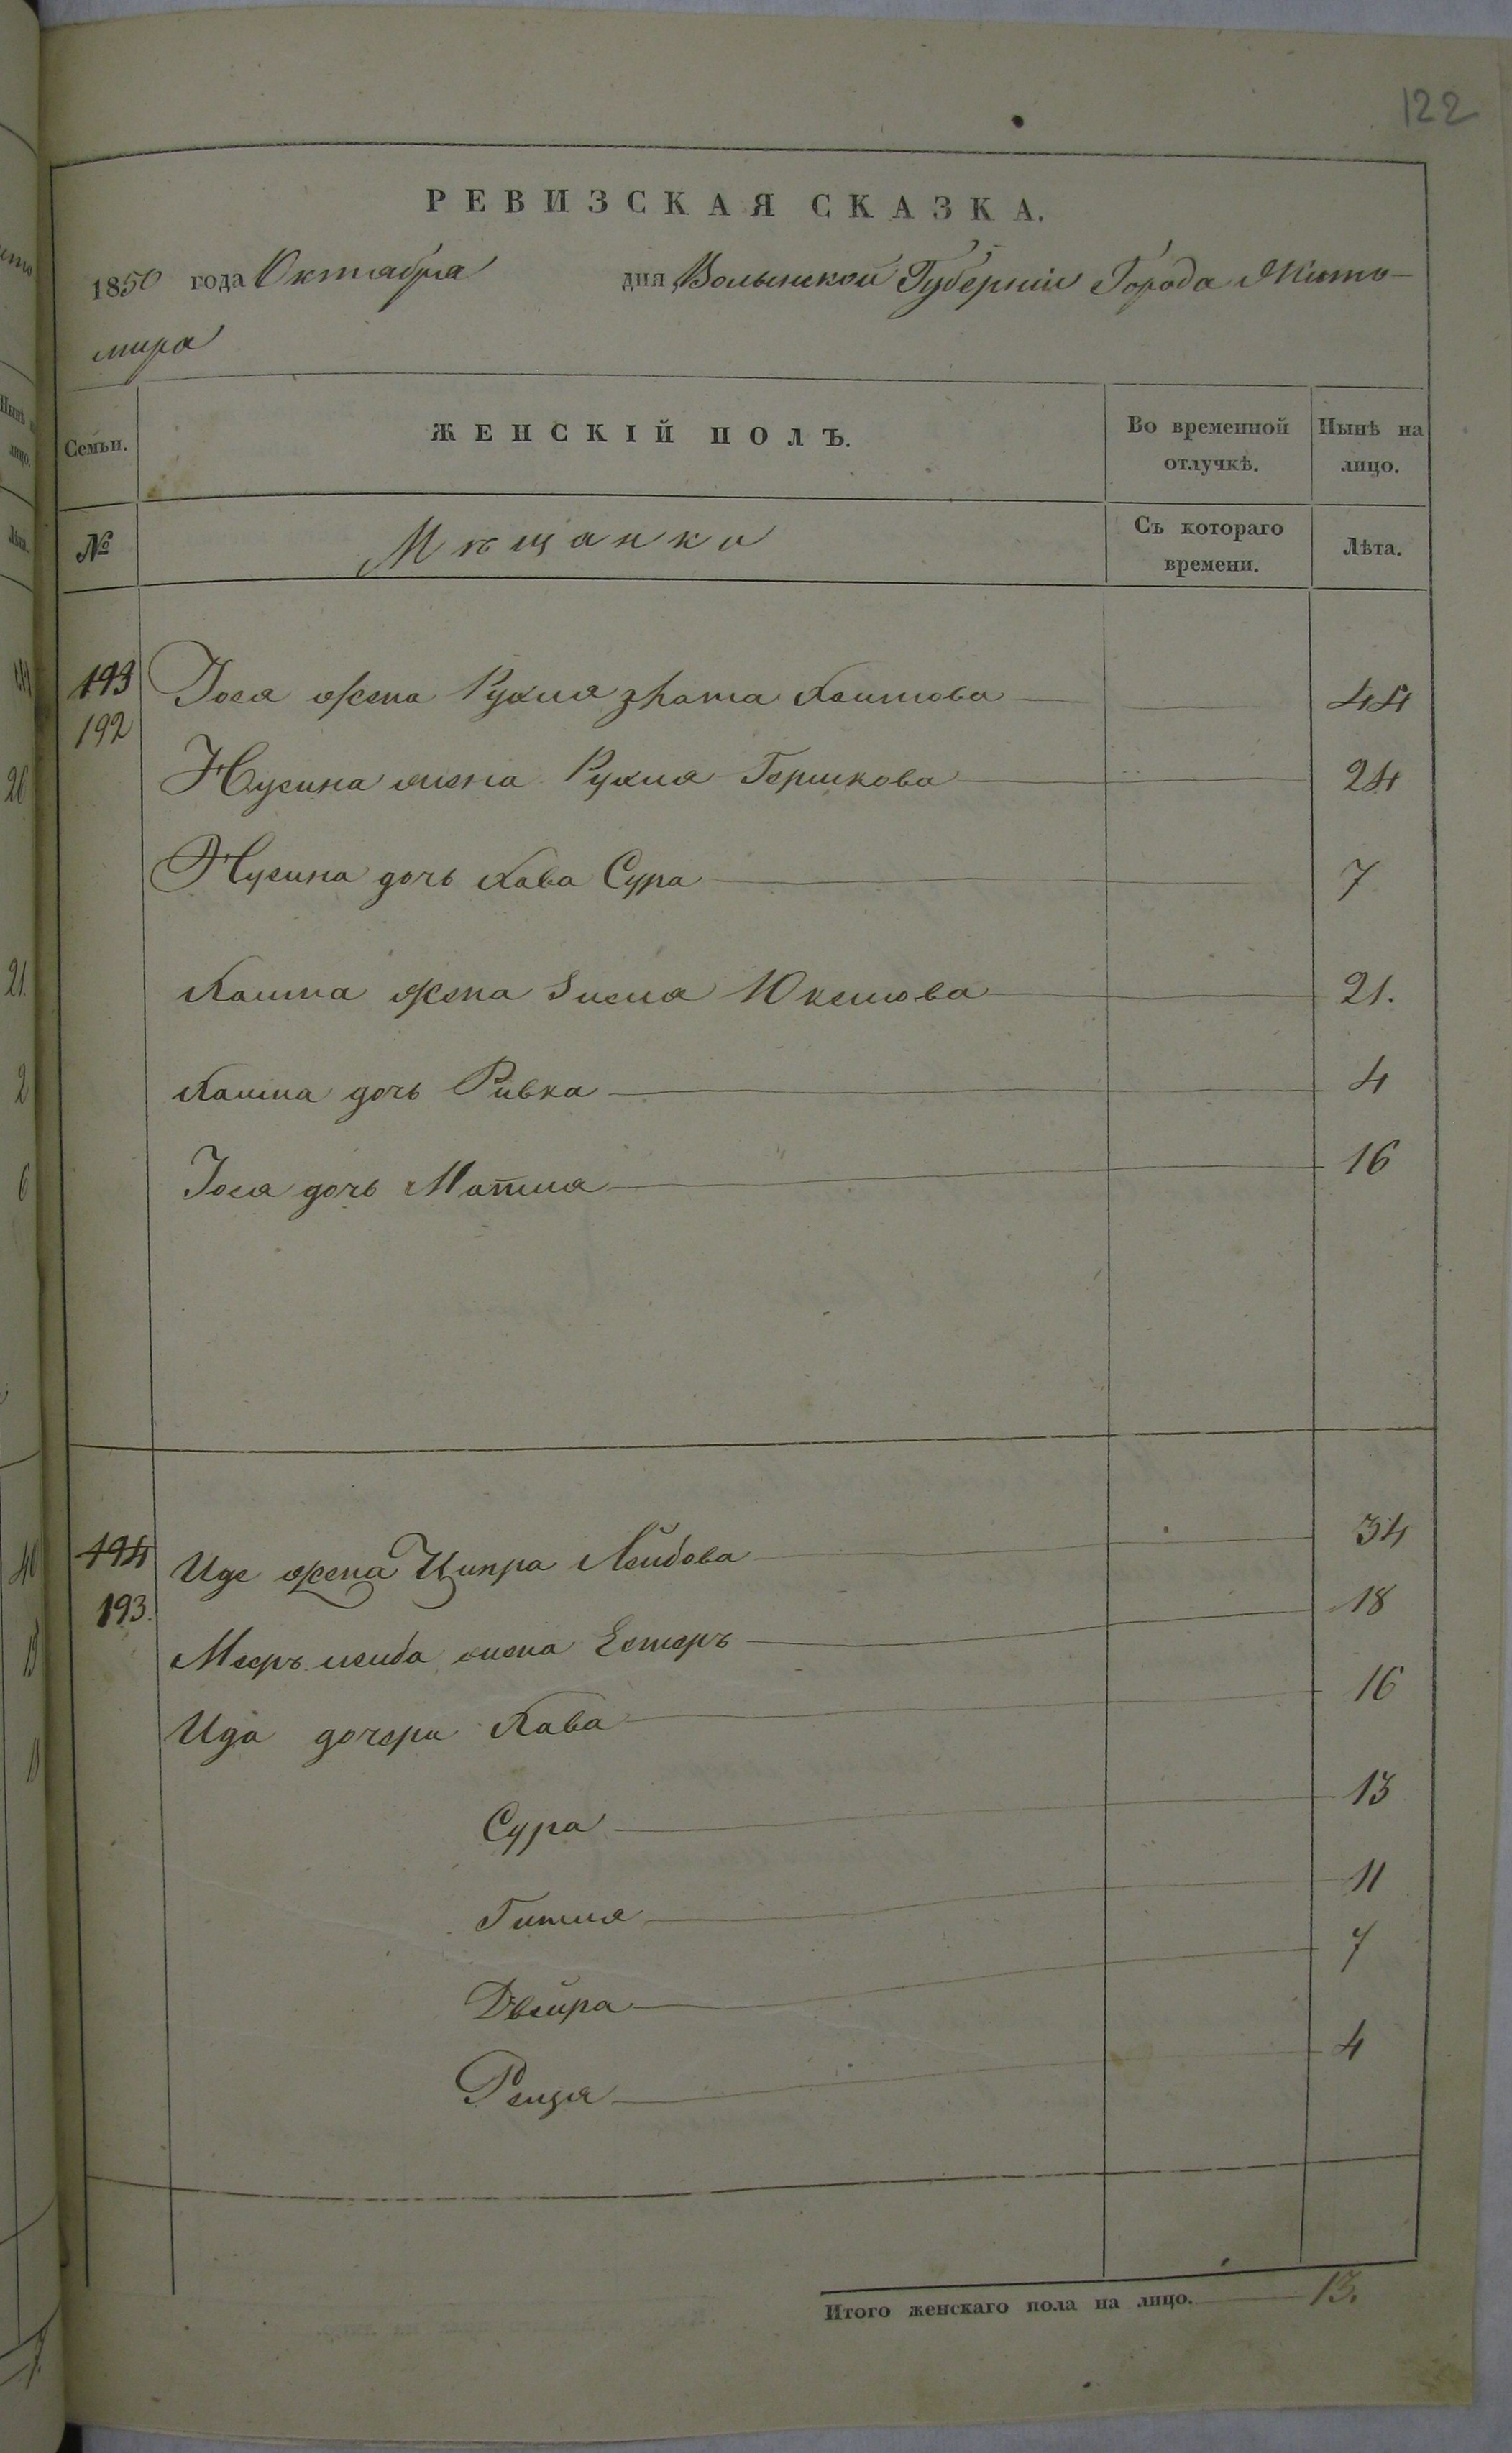 122
РЕВИЗСКАЯ СКАЗКА.
1850 года Октября дня Волынской Губерніи Города Жито-
мира
Семьи. ЖЕНСКІЙ ПОЛЪ. Во временной отлучкѣ. Нынѣ на лицо.
№ Мѣщанки Съ котораго времени. Лѣта.
193 Іося жена Рухля злата Хаимова 44
192
Нусина жена Рухля Гершкова 24
Нусина дочь Хава Сура 7
Хаима жена Зисля 21.
Хаима дочь Ривка 4
Іося дочь Матля 16
194 Иде жена Ципра Лейбова 34
193.
Мееръ лейба жена Естеръ 18
Ида дочери Хава 16
Сура 13
Гитля 11
Двейра 7
Рейзя 4
Итого женскаго пола на лицо. 13.